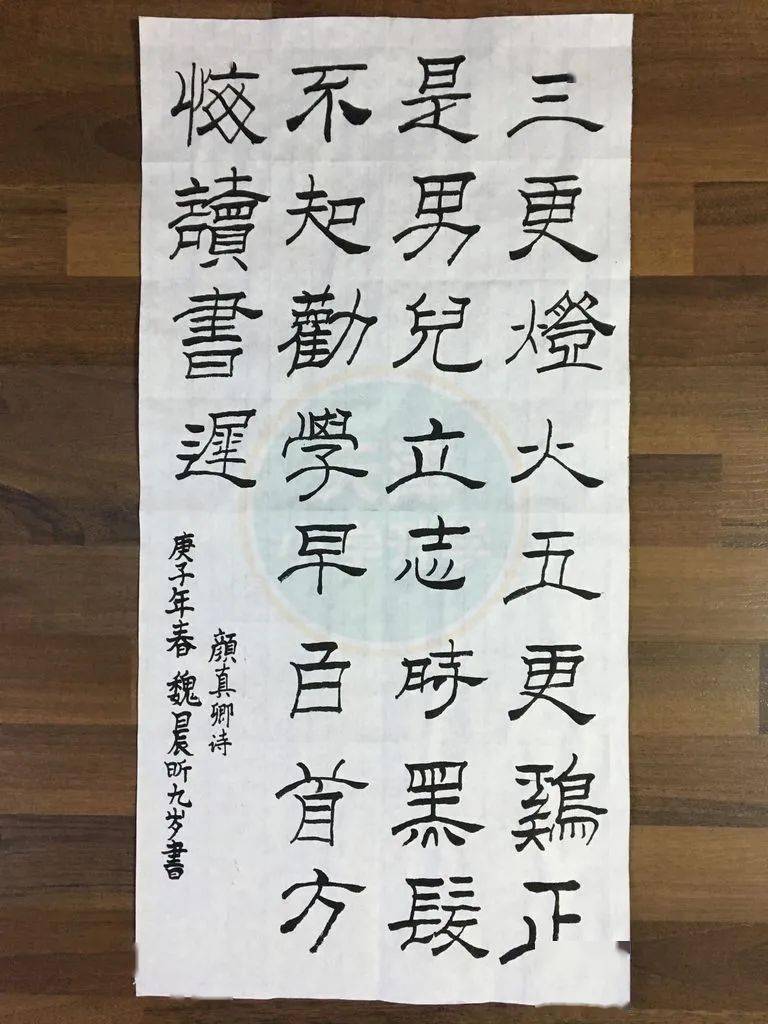 三更燈火五更鷄正
是男兒立志時黑髮
不知勸學早百首方
悔讀書遲
顔真卿诗
庚子年春魏晨昕九岁書